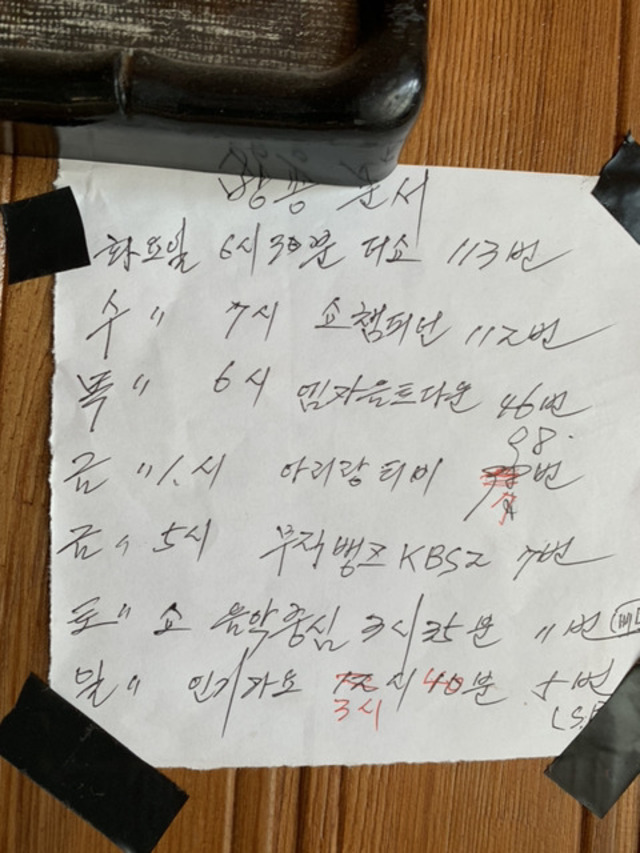 방송 순서
화요일 6시30분 더쇼 113번
수 〃 7시 쇼챔피언 112번
목 〃 6시 엠카운트다운 46번
98.
금 〃 1.시 아리랑티비 번
금 〃 5시 뮤직뱅크 KBS2 7번
토 〃 쇼 음악중심 3시 35분 11번
일 〃 인기가요 시 40분 5번
3시